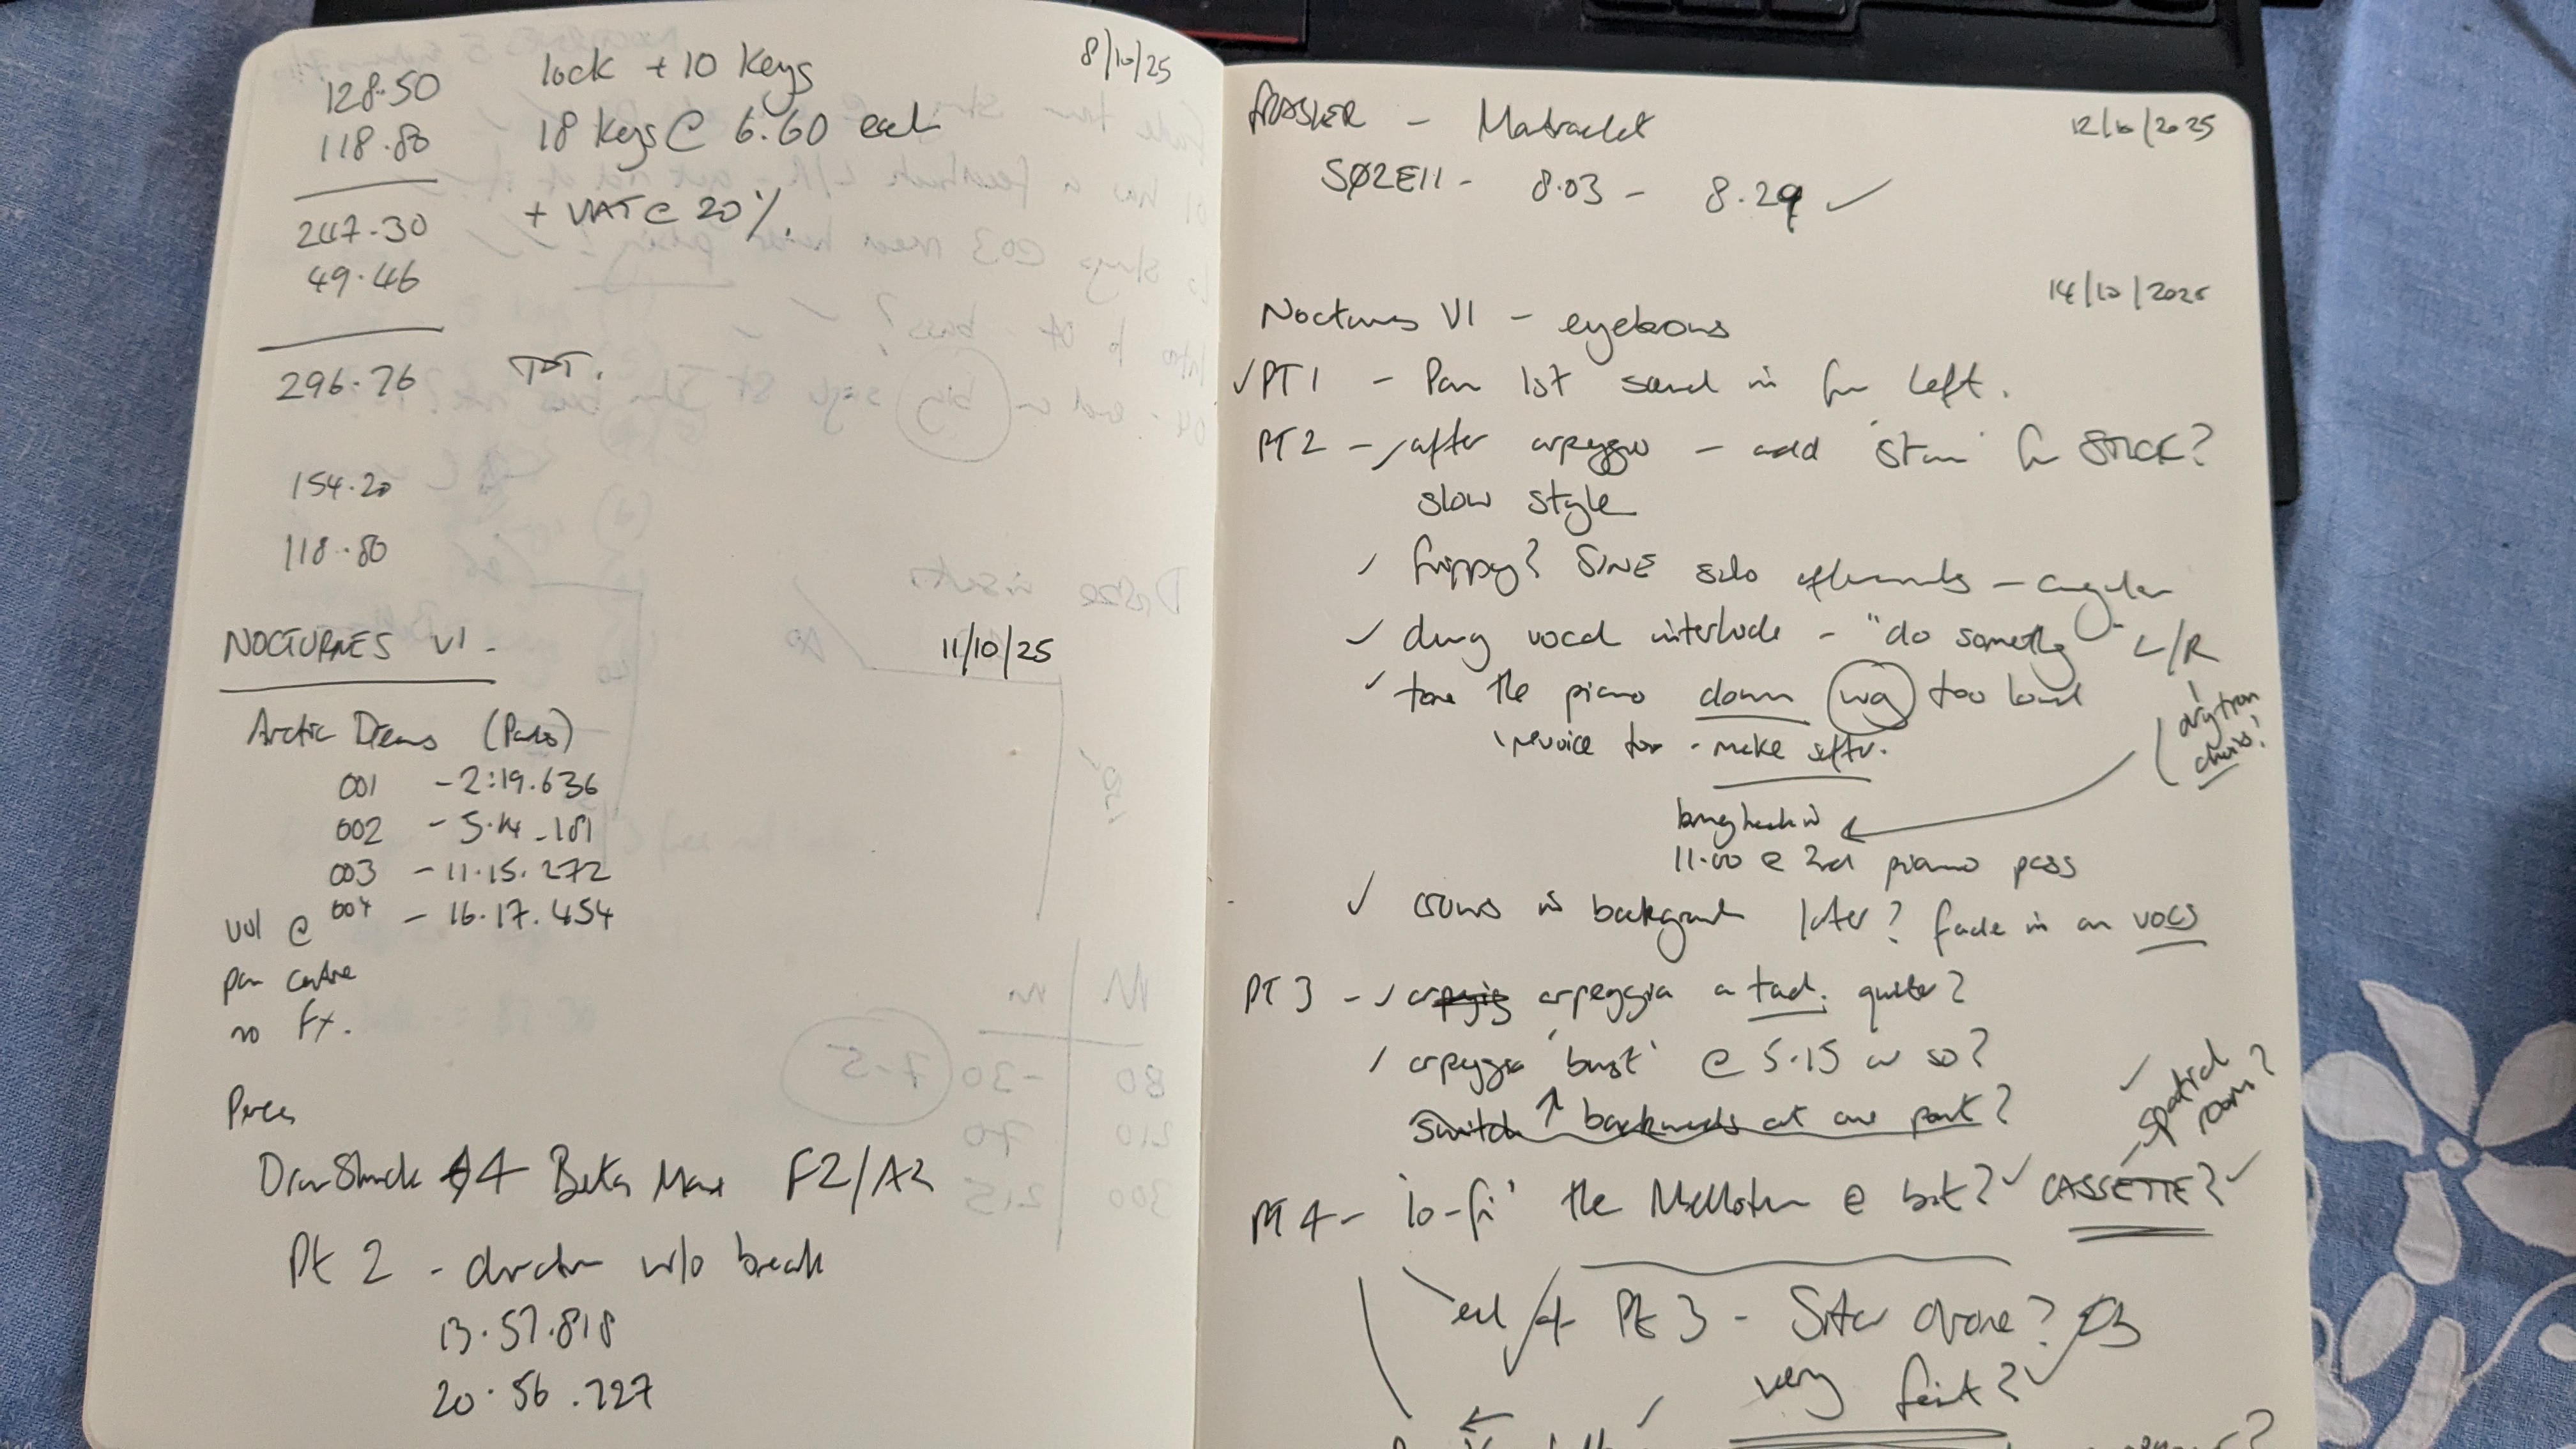 8/10/25
128.50 lock + 10 keys
118.80 18 keys @ 6.60 each
247.30 + VAT @ 20%.
49.46
296.76 TOT.
154.20
118.80
NOCTURNES VI - 11/10/25
Arctic Dreams (Pads)
001 - 2:19.636
002 - 5.14.181
003 - 11.15.272
004 - 16.17.454
vol @
pan centre
no fx.
Percs
4 Beta Max F2/A2
Pt 2 - duration w/o break
13.57.818
20.56.727
FRASIER - 12/10/2025
SØ2E11 - 8.03 - 8.29 ✓
14/10/2025
Nocturnes VI - eyebrows
✓ PT 1 - Pan 1st sound in from Left.
PT 2 - ✓ after arpeggio - add 'Stan' for STICK?
slow style
✓ frippy? SINE solo afterwards - angular
✓ during vocal interlude - "do something" L/R
✓ tone the piano down way too loud
revoice too - make softer.
bring back in
11.00 @ 2nd piano pass
✓ crows in background later? fade in on vocs
PT 3 - ✓ arpeggia a tad. quieter?
✓ arpeggia 'burst' @ 5.15 or so?
switch ↑ backwards at one point?
✓ - spatial room?
PT 4 - 'lo-fi' the Mellotron a bit? ✓ CASSETTE? ✓
end of Pt 3 - Sitar drone?
very faint? ✓